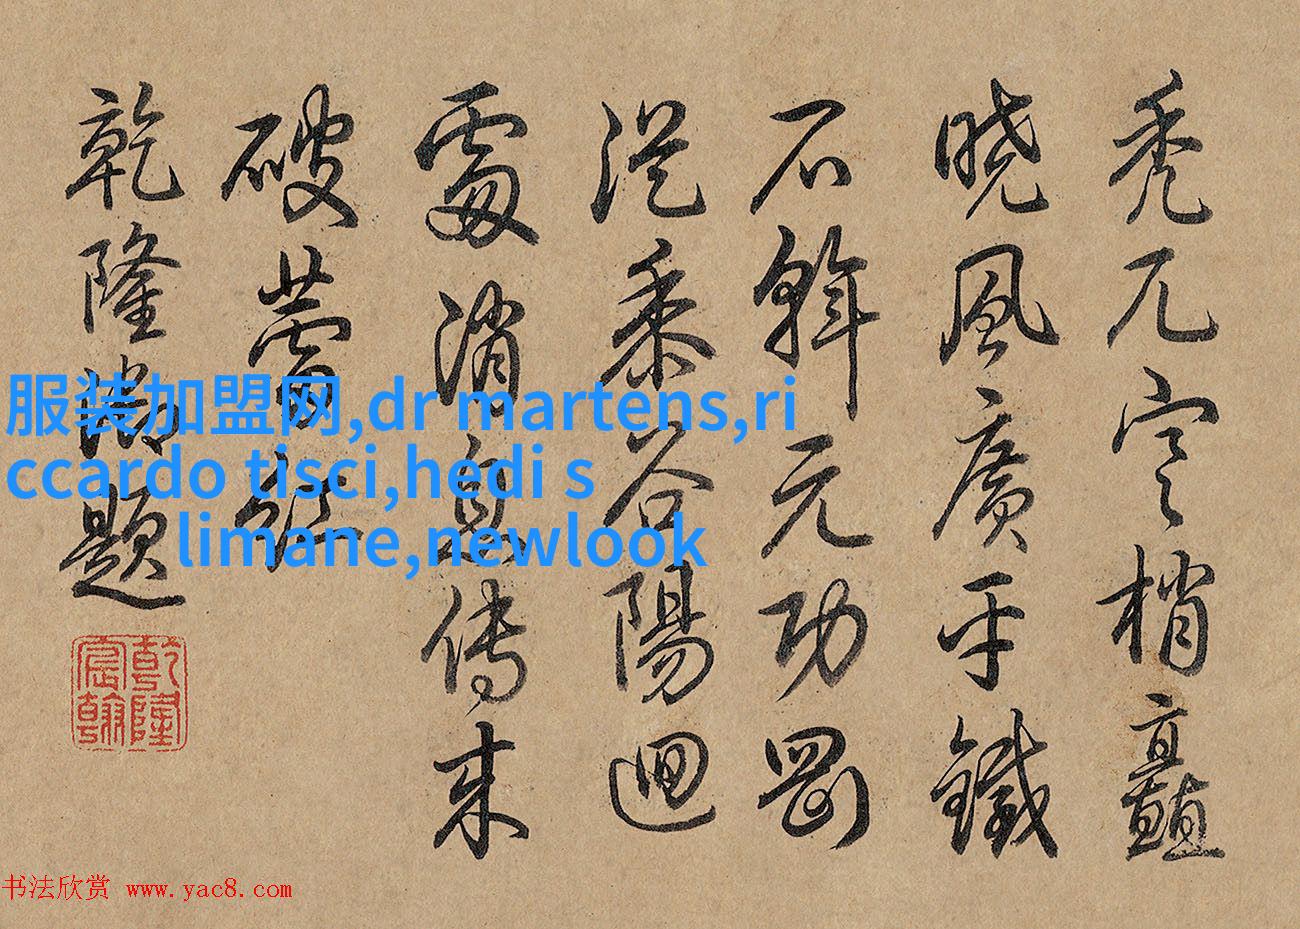 禿兀寒梢矗
晓風廣平鐵
石斡元功剛
從黍谷陽迴
處消息傳来
破蕾紅
乾隆御題
乾隆
宸翰
服装加盟网,dr martens,ri
ccardo tisci,hedi s
limane,newlook
书法欣赏 www.yac8.com